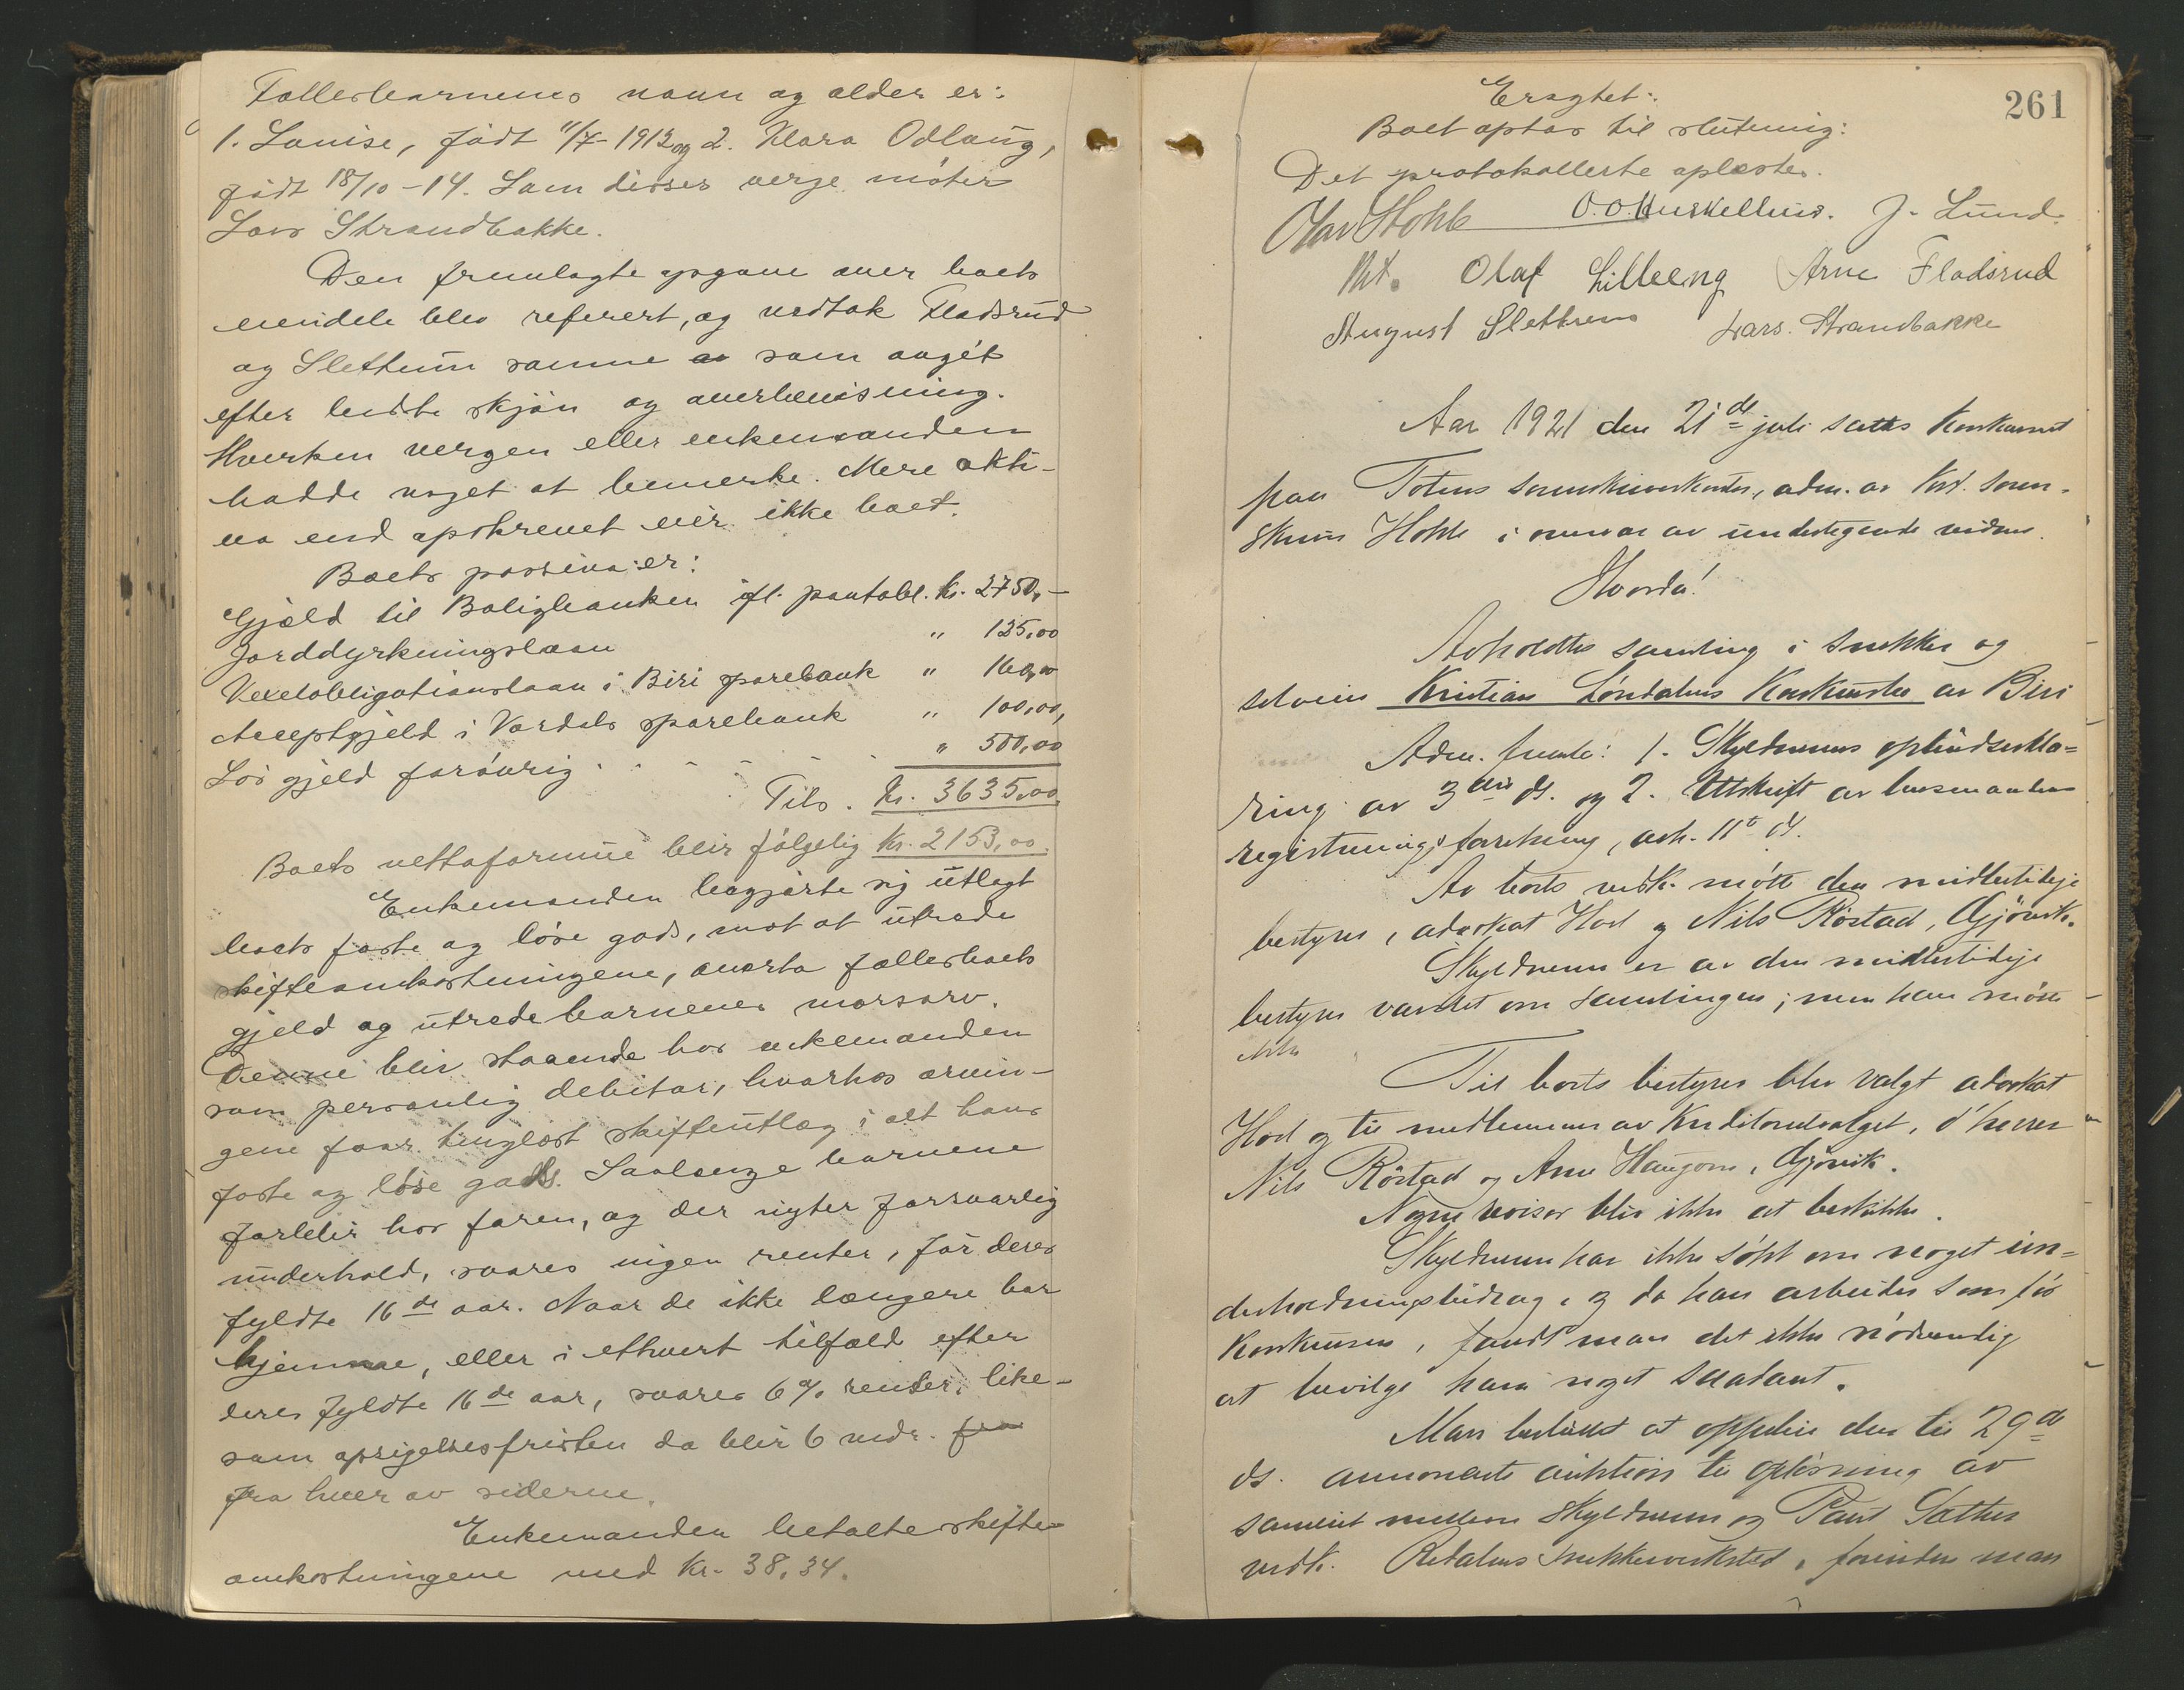 Fællesbarnenes navn og alder er:
1. Lovise, født 11/7-1912 og 2. Klara Odlaug,
født 18/10-14. Som disses verge møter
Lars Strandbakke.
Den fremlagte opgave over boets
eiendele blev referert, og vedtok Fladsrud
og Slettum samme som avgit
efter bedste skjøn og overbevisning.
Hverken vergen eller enkemanden
hadde noget at bemerke. Mere akti-
va end opskrevet eier ikke boet.
Boets passiva er:
Gjæld til Boligbanken ifl. pantobl. Kr. 2750,-
Jorddyrkningslaan " 125,00
Vexelobligationslaan i Biri sparebank " 160,00
Acceptgjeld i Vardals sparebank " 100,00,
Løs gjeld forøvrig - - - - " 500,00
Tils. Kr. 3635,00.
Boets nettoformue blir følgelig Kr. 2153,00.
Enkemanden begjærte sig utlagt
boets faste og løse gods, mot at utrede
skifteomkostningene, overta fællesboets
gjeld og utrede barnenes morsarv.
Denne blir staaende hos enkemanden
som personlig debitor, hvorhos arvin-
gene faar tinglæst skifteutlæg i alt hans
faste og løse gods. Saalænge barnene
forblir hos faren, og der nyter forsvarlig
underhold, svares ingen renter, før deres
fyldte 16de aar. Naar de ikke længere har
hjemme, eller i ethvert tilfæld efter
deres fyldte 16de aar, svares 6% renter, like-
som opsigelsesfristen da blir 6 mdr. fra
fra hver av siderne.
Enkemanden betalte skifte-
omkostningene med Kr. 38,34.
261
Eragtet:
Boet optas til slutning:
Det protokollerte oplæstes.
Olav Hohle O. O. Huskelhus. J. Lund.
Olaf Lilleeng Arne Fladsrud
August Slettum Lars. Strandbakke
Aar 1921 den 21de juli sattes Konkursret
paa Totens sorenskriverkontor, adm. av Kst. soren-
skriver Hohle i overvær av undertegnede vidner.
Hvorda!
Avholdtes samling i snekker og
selveier Kristian Løndahls Konkursbo av Biri
Adm. fremla: 1. Skyldnerens opbudserklæ=
ring av 3die ds. og 2. Utskrift av lensmandens
registreringsforretning, avh. 11te ds.
Av boets vedk. møtte den midlertidige
bestyrer, advokat Hoel og Nils Røstad, Gjøvik.
Skyldneren er av den midlertidige
bestyrer varslet om samlingen; men han møtte
ikke
Til boets bestyrer blev valgt advokat
Hoel og til medlemmer av Kreditorutvalget, d'herrer
Nils Røstad og Arne Haugom, Gjøvik.
Nogen revisor blev ikke at beskikke.
Skyldneren har ikke søkt om noget un=
derholdningsbidrag, og da han arbeider som før
konkursen, fandt man det ikke nødvendig
at bevilge ham noget saadant.
Man besluttet at oppebie den til 29de
ds. annoncerte auktion til opløsning av
sameiet mellem skyldneren og Paul Sæther
vedk. Redalens snekkerverksted, forinden man